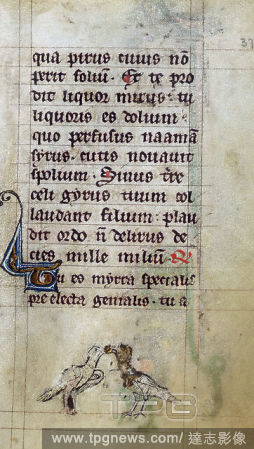 37
qua pirus cuius nō
perit folium. Et te pro
dit liquor mirus. tu
liquoris es dolium.
quo perfusus naamā
syrus. cutis nouauit
spolium. Sinus tre
celi gyrus tuum col
laudant filium. plau
dit ordo ñ delirus de
cies mille milium̄
Tu es myrta specialis
pre electa genialis. tu a
TPG
www.tpgnews.com/達志影像